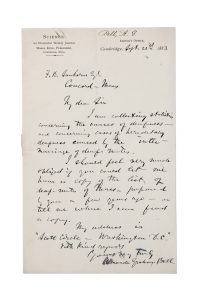 Bell, A. G.
SCIENCE
An Illustrated Weekly Journal
Editor's Office,
Cambridge, Sept. 22nd 1883
F. B. Sanborn Esq.
Concord — Mass
My dear Sir
I am collecting statistics
concerning the causes of deafness —
and concerning cases of hereditary
deafness caused by the inter-
marriage of deaf-mutes.
I should feel very much
obliged if you could let me
have a copy of the list of
deaf-mutes of Mass. prepared
by you a few years ago — or
tell me where I can find
a copy.
My address is
"Scott Circle — Washington D.C."
With kind regards
Yours very truly
Alexander Graham Bell